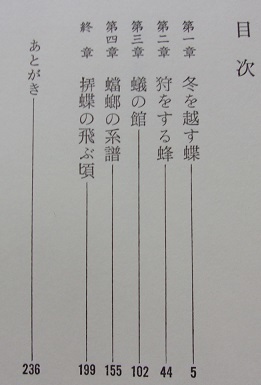 目次
第一章 冬を越す蝶 5
第二章 狩をする蜂 44
第三章 蟻の館 102
第四章 蟷螂の系譜 155
終章 揚蝶の飛ぶ頃 199
あとがき 236